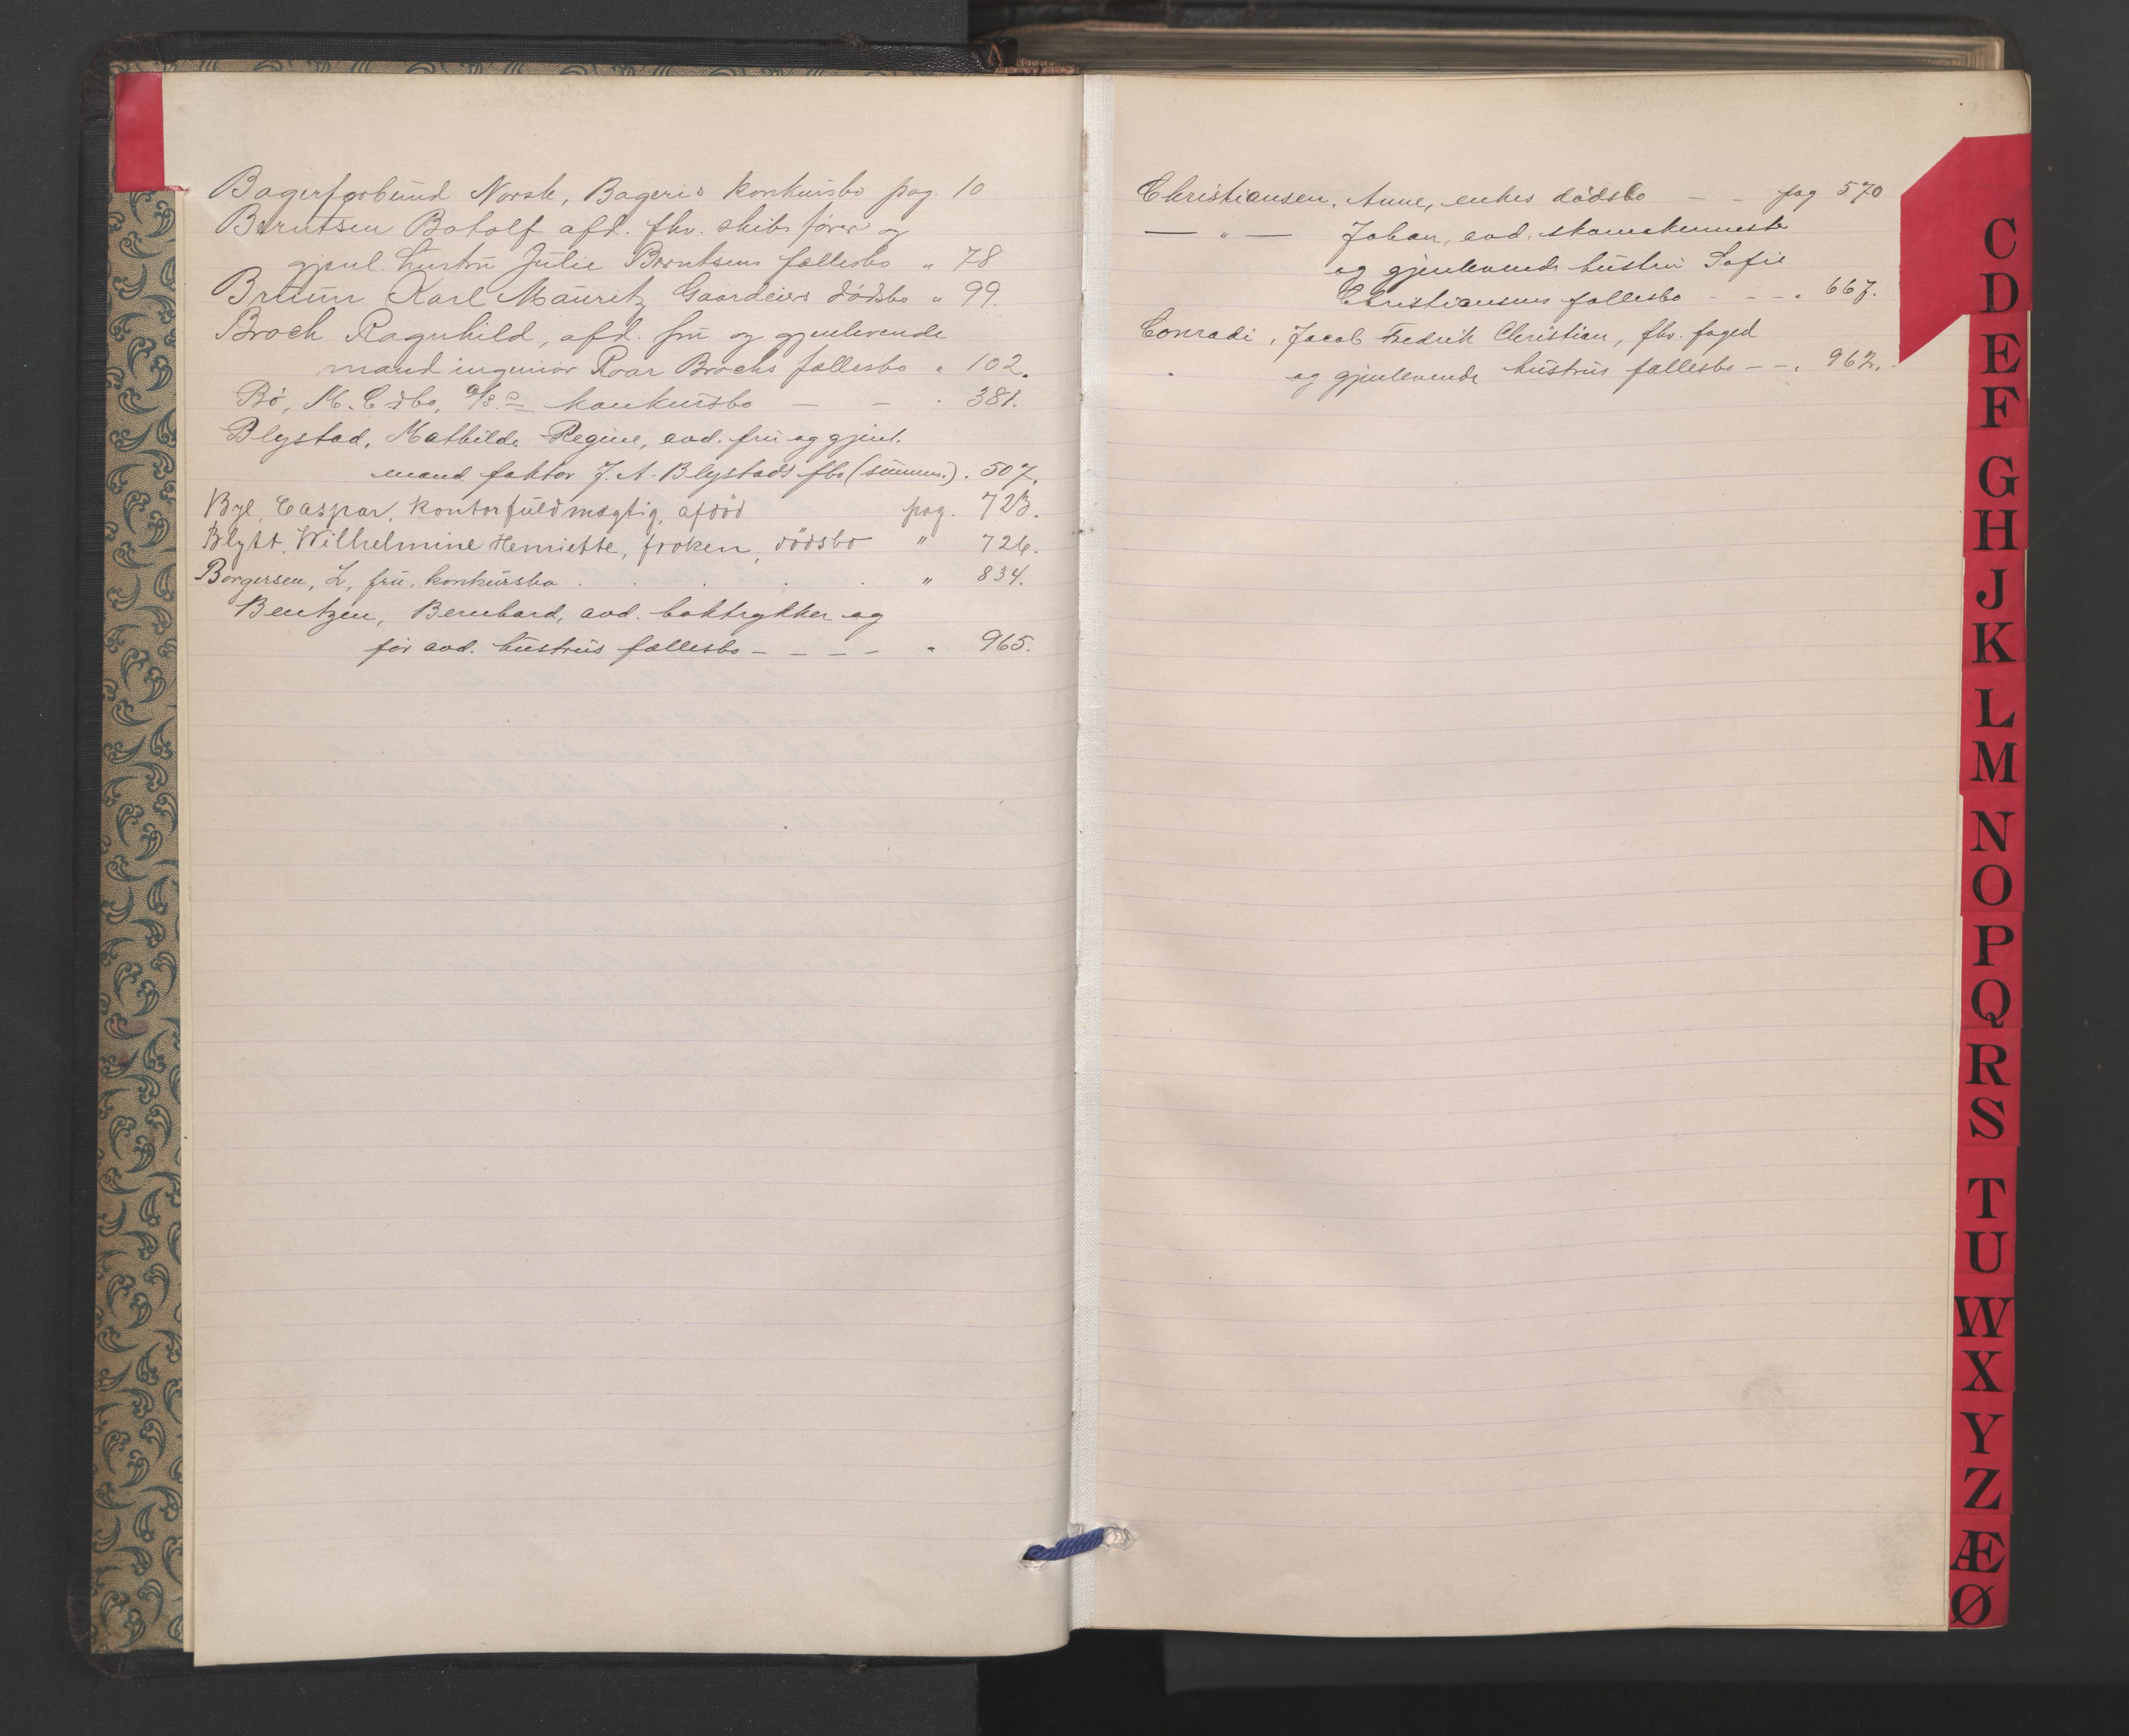 Bagerforbund Norsk, Bageris konkursbo pag. 10
Berntsen Botolf afd. fhv. skibsfører og
gjenl. hustru Julie Berntsens fællesbo " 78
Bruun Karl Mauritz Gaardeiers dödsbo " 99.
Broch Ragnhild, afd. fru og gjenlevende
mand ingeniør Roar Brochs fællesbo " 102.
Bö, M. C. & Co, a/s.s konkursbo — — . 381.
Blystad, Mathilde Regine, avd. fru og gjenl.
mand faktor J. A. Blystads fbo (summ.) . 507.
Byl, Caspar, kontorfuldmægtig, afdöd pag. 723.
Blytt, Wilhelmine Henriette, fröken, dödsbo " 726.
Borgersen, L, fru, konkursbo . . . . " 834.
Bentzen, Bernhard, avd. boktrykker og
før avd. hustrus fællesbo - - - - " 965.
Christiansen, Anne, enkes dödsbo - - pag 570
— " — Johan, avd. skomakermester
og gjenlevende hustru Sofie
Christiansens fællesbo - - - . 667.
Conradi, Jacob Fredrik Christian, fhv. foged
og gjenlevende hustrus fællesbo - - . 962.
C
D
E
F
G
H
J
K
L
M
N
O
P
Q
R
S
T
U
W
X
Y
Z
Æ
Ø